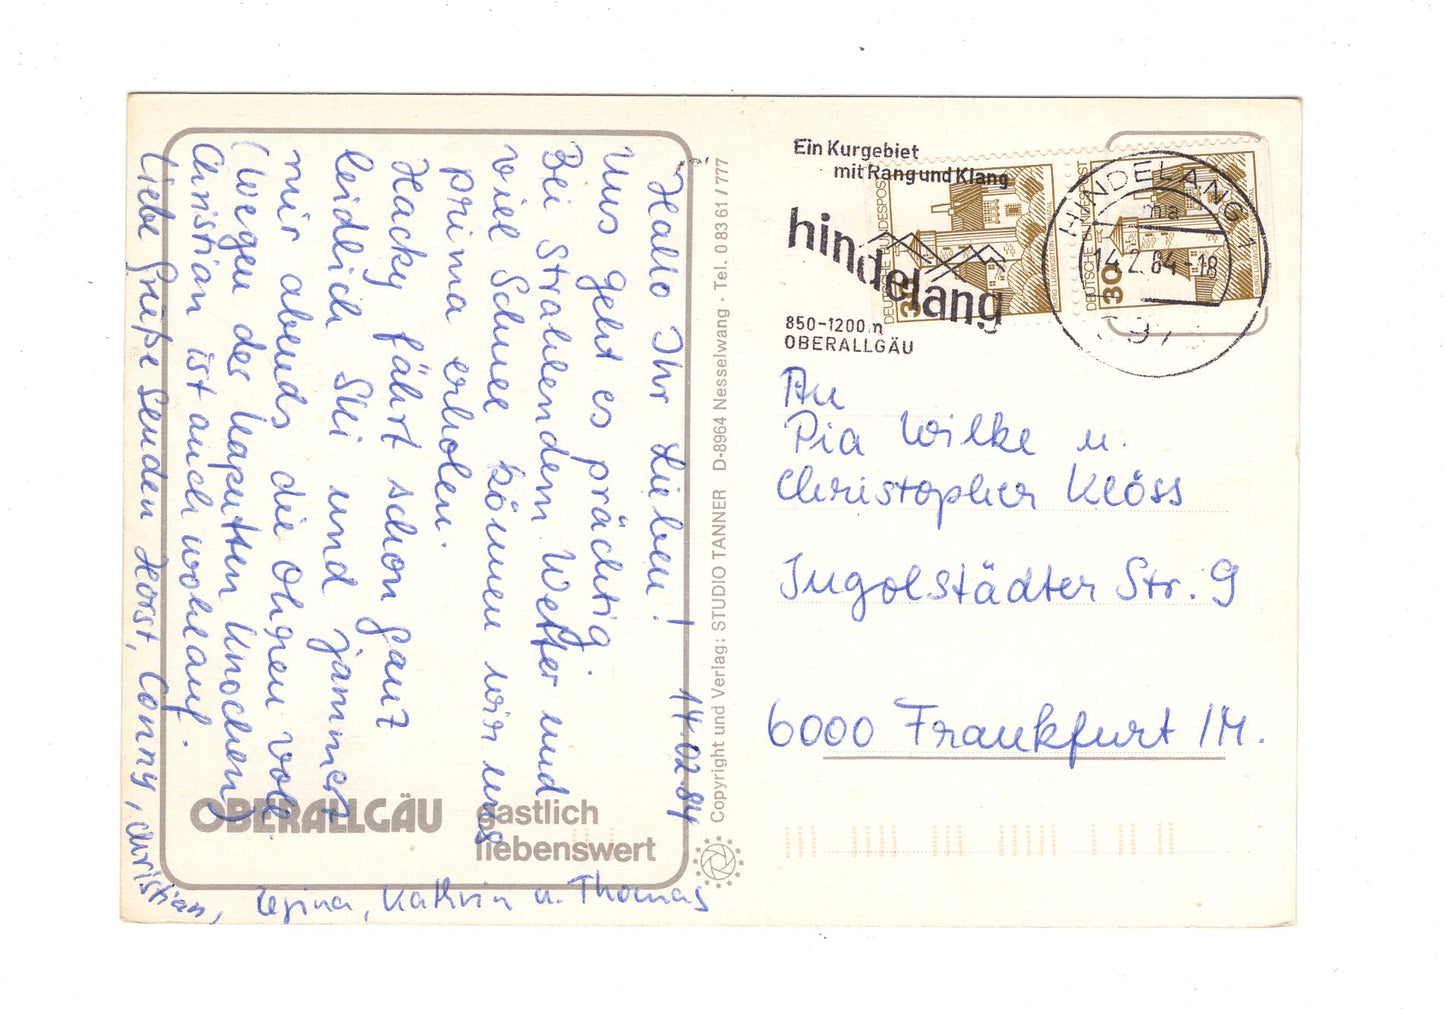 14.02.84
Hallo Ihr Lieben!
Uns geht es prächtig.
Bei strahlendem Wetter und
viel Schnee können wir uns
prima erholen.
Hacky fährt schon ganz
leidlich Ski und jammert
mir abends die Ohren voll
(wegen der kaputten Knochen)
Christian ist auch wohlauf.
Liebe Grüße senden Horst, Conny, Christian,
Regina, Kathrin u. Thomas
OBERALLGÄU gastlich
liebenswert
Copyright und Verlag: STUDIO TANNER D-8964 Nesselwang · Tel. 0 83 61 / 777
Ein Kurgebiet
mit Rang und Klang
hindelang
850-1200 m
OBERALLGÄU
DEUTSCHE BUNDESPOST
30
DEUTSCHE BUNDESPOST
30
HINDELANG 1
ma
14.2.84-18
897
An
Pia Wilke u.
Christopher Klöss
Ingolstädter Str. 9
6000 Frankfurt /M.